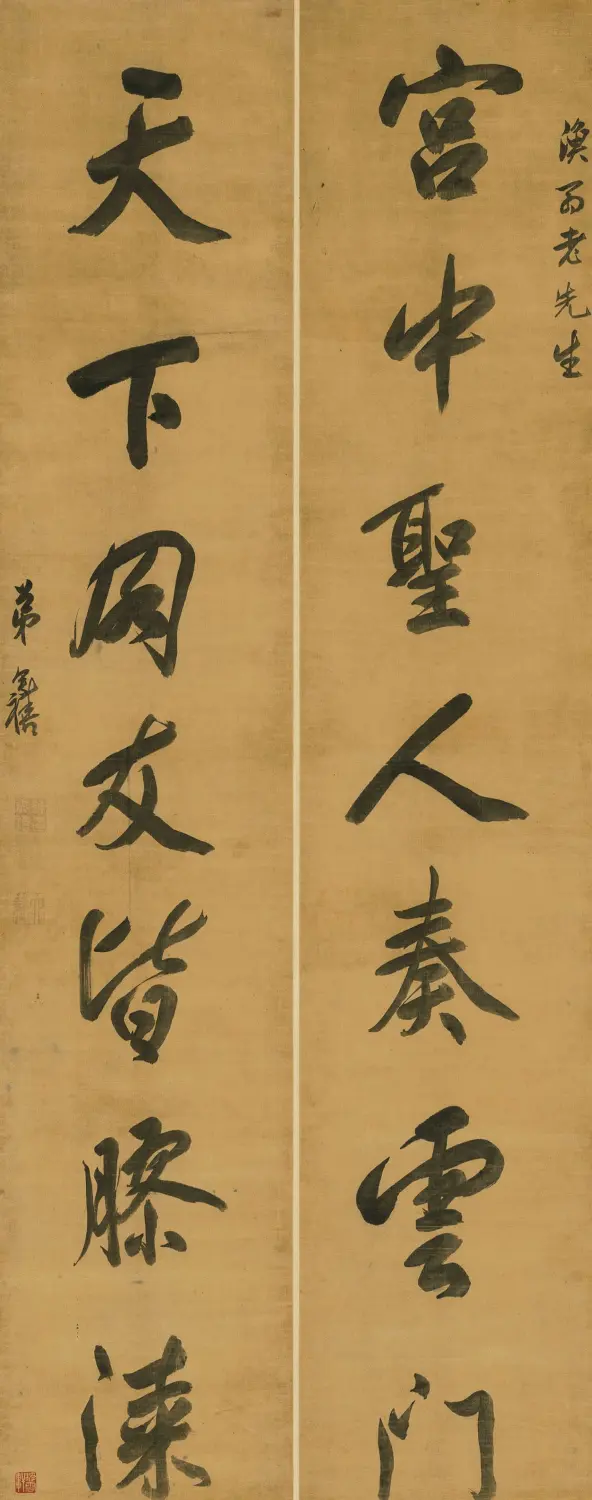 老先生
宮中聖人奏雲門
天下朋友皆膠漆
弟奕禧